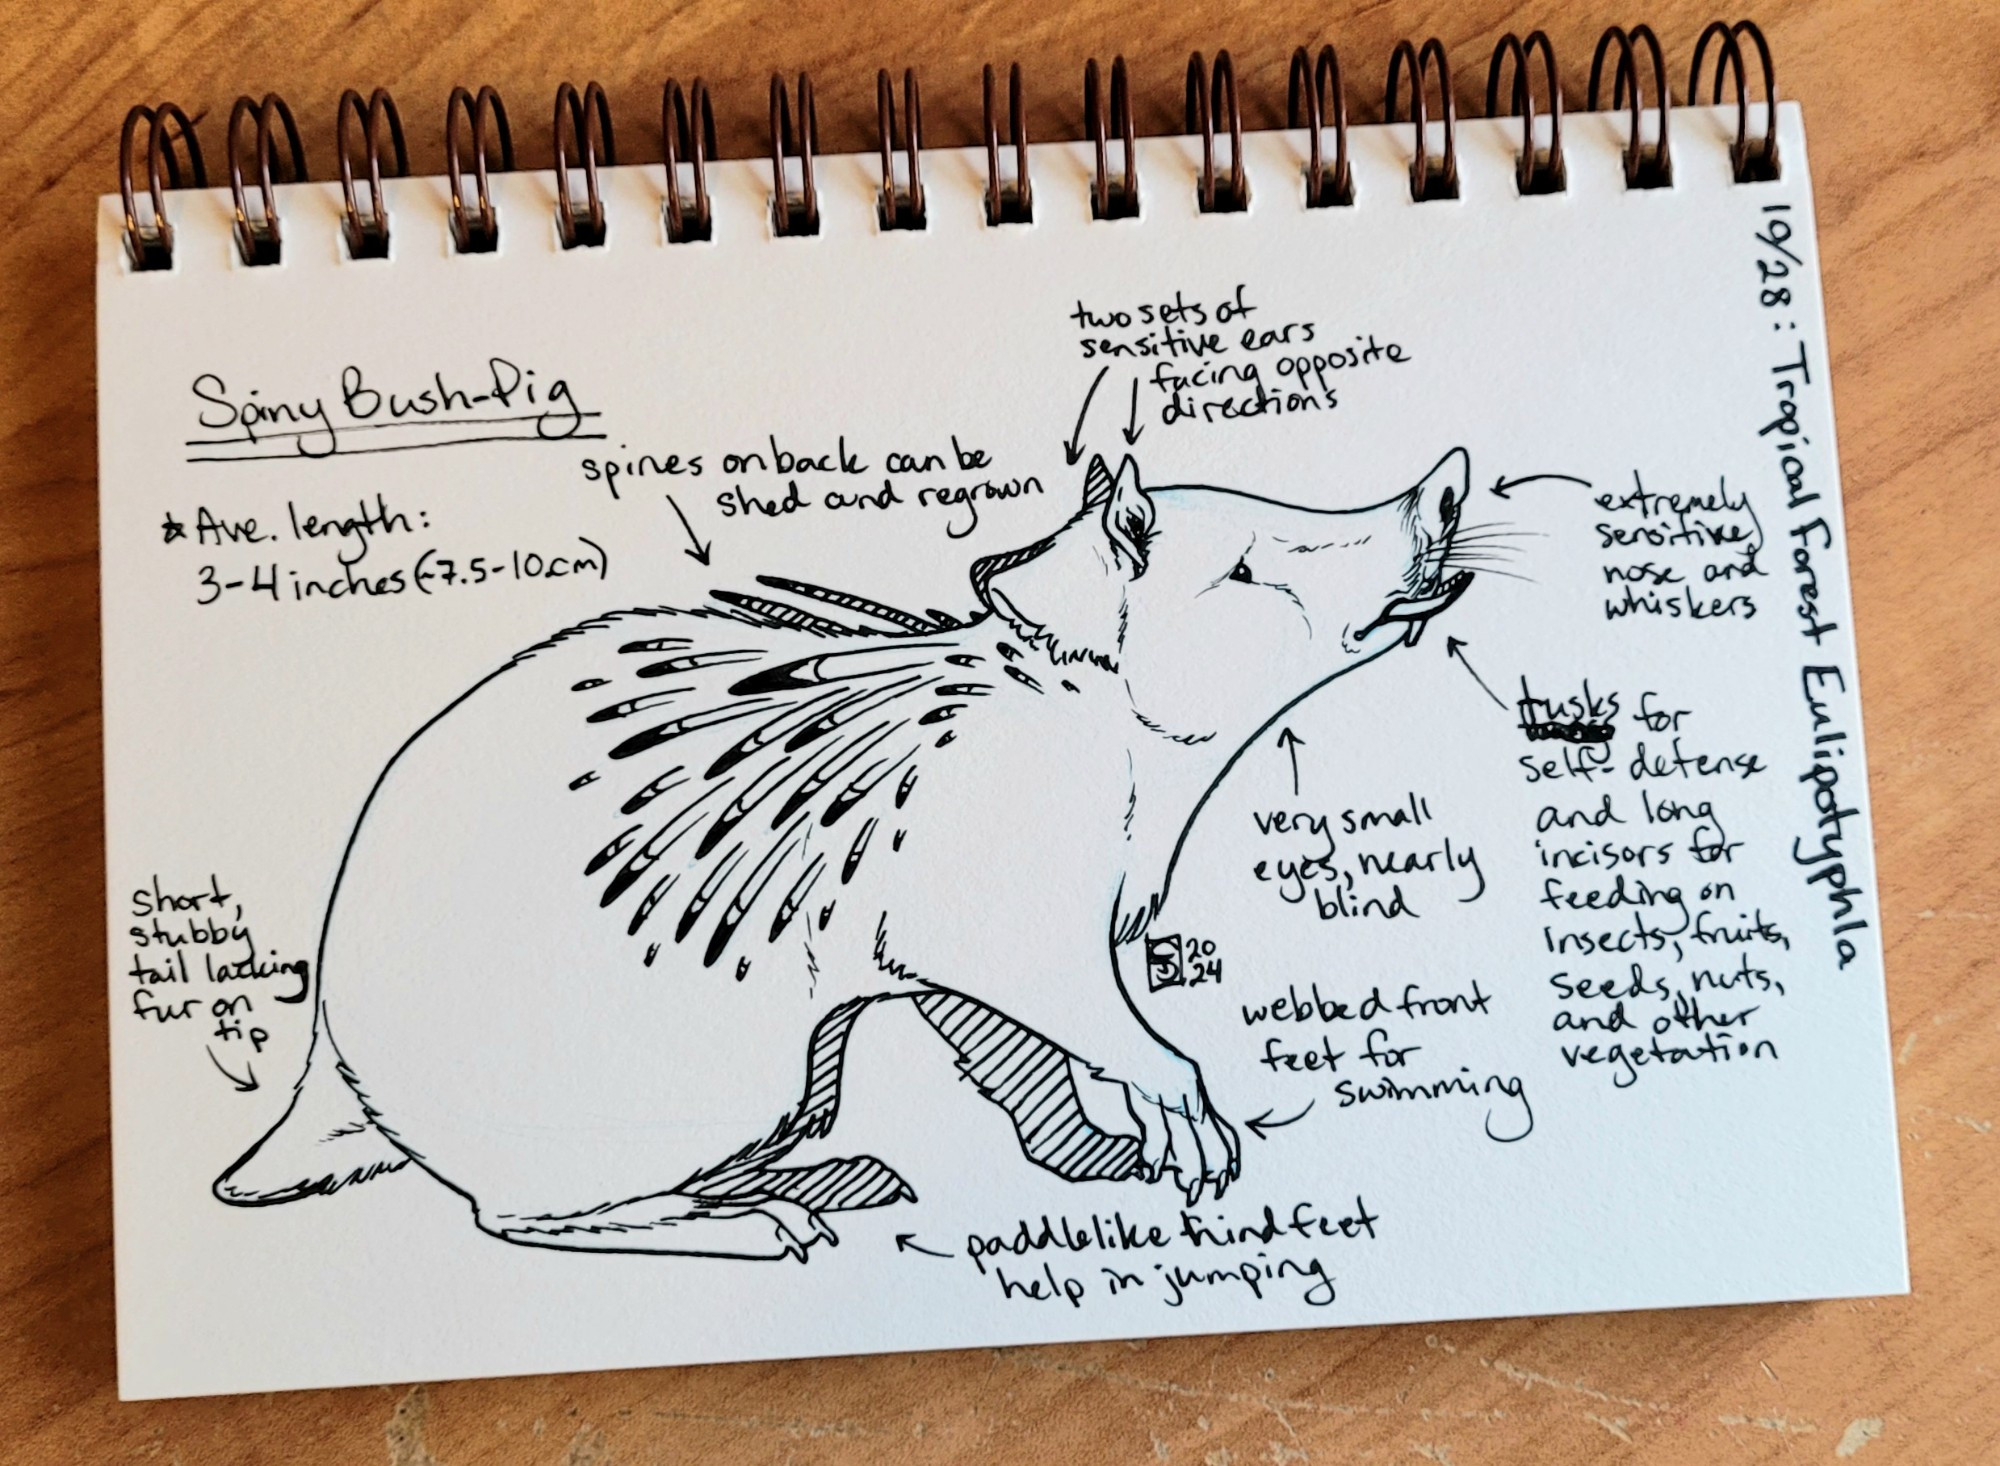 10/28: Tropical Forest Eulipotyphla
Spiny Bush-Pig
* Ave. length:
3-4 inches (~7.5-10cm)
two sets of
sensitive ears
facing opposite
directions
spines on back can be
shed and regrown
extremely
sensitive
nose and
whiskers
tusks for
self-defense
and long
incisors for
feeding on
insects, fruits,
seeds, nuts,
and other
vegetation
very small
eyes, nearly
blind
short,
stubby
tail lacking
fur on
tip
20
24
webbed front
feet for
swimming
paddlelike hind feet
help in jumping